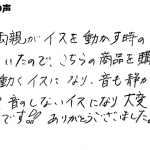 の声
両親がイスを動かす時の
いたので、こちらの商品を購
動くイスになり、音も静か
音のしないイスになり大変
です!! ありがとうございました。